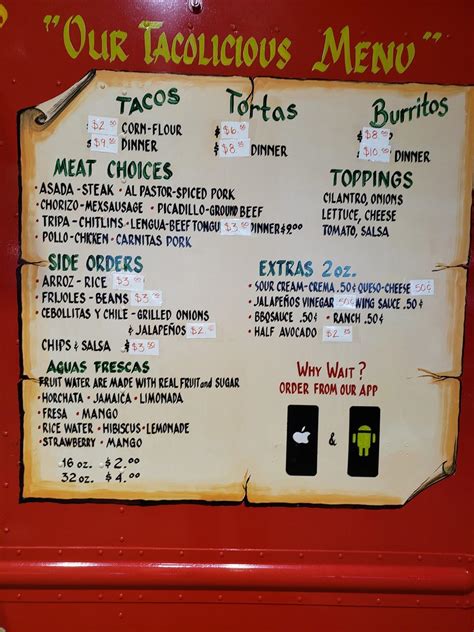 "Our Tacolicious Menu"
TACOS
Tortas
Burritos
$2.00 CORN-FLOUR
$6.00
$8.00
$9.00 DINNER
$8.00 DINNER
$10.00 DINNER
MEAT CHOICES
• ASADA-STEAK • AL PASTOR-SPICED PORK
• CHORIZO-MEXSAUSAGE • PICADILLO-GROUND BEEF
• TRIPA-CHITLINS • LENGUA-BEEF TONGU DINNER $9.00
• POLLO-CHICKEN • CARNITAS PORK
TOPPINGS
CILANTRO, ONIONS
LETTUCE, CHEESE
TOMATO, SALSA
SIDE ORDERS
• ARROZ-RICE
• FRIJOLES-BEANS
• CEBOLLITAS Y CHILE-GRILLED ONIONS
& JALAPEÑOS
CHIPS & SALSA
EXTRAS 2oz.
• SOUR CREAM-CREMA .50¢ QUESO-CHEESE 50¢
• JALAPEÑOS VINEGAR 50¢ WING SAUCE .50¢
• BBQSAUCE .50¢ • RANCH .50¢
• HALF AVOCADO
AGUAS FRESCAS
FRUIT WATER ARE MADE WITH REAL FRUIT and SUGAR
• HORCHATA • JAMAICA • LIMONADA
• FRESA • MANGO
• RICE WATER • HIBISCUS • LEMONADE
• STRAWBERRY • MANGO
16 oz. $2.00
32 oz. $4.00
WHY WAIT?
ORDER FROM OUR APP
&